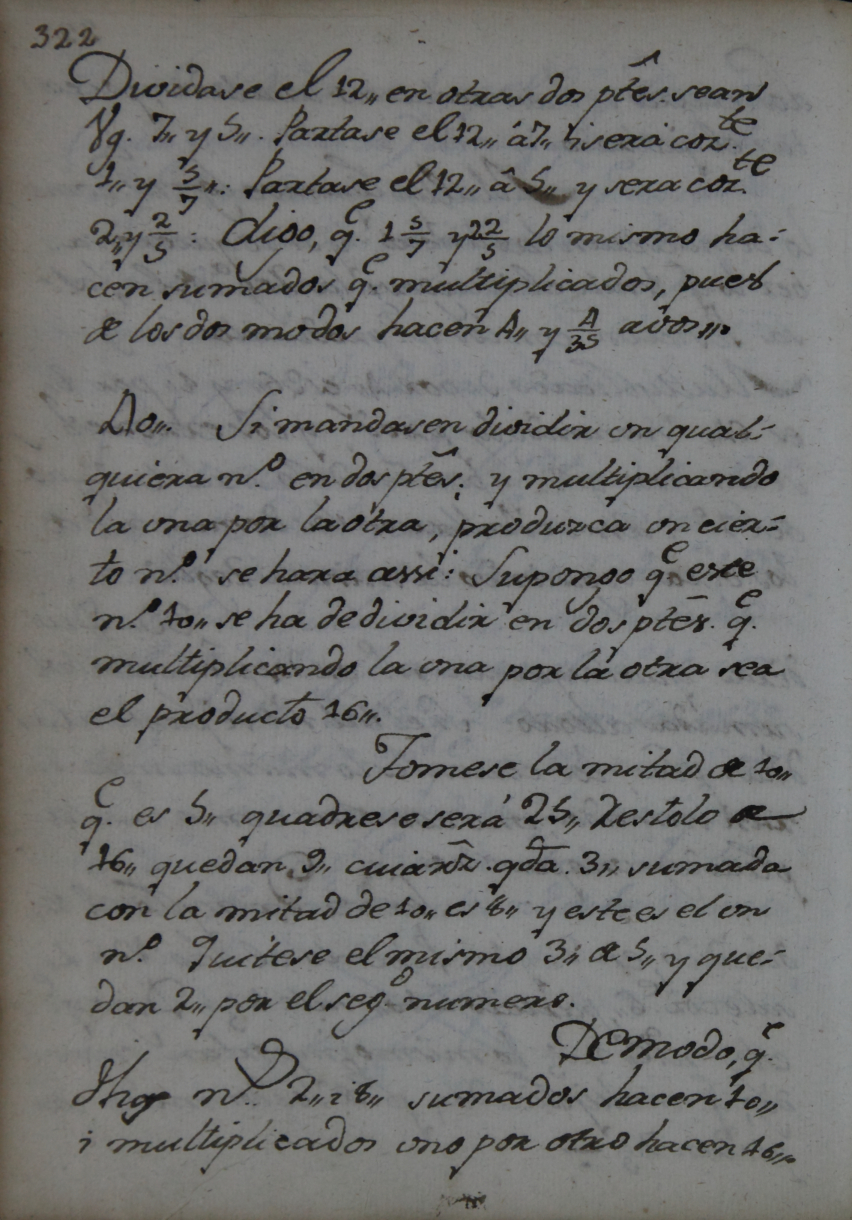 322
Dividase el 12,, en otras dos ptẽs. sean
Vg. 7,, y 5,,. Partase el 12,, á 7,, i será coz.te
1,, y 5/7,,: Partase el 12,, â 5,, y sera coz.te
2,, y 2/5: Digo, q.e 1 5/7 y 2 2/5 lo mismo ha-
cen sumados q.e multiplicados, pues
de los dos modos hacen 4,, y 4/35 avos,,.
Si mandasen dividir vn qual-
quiera n.o en dos ptẽs. y multiplicando
la vna por la otra, produzca vn cier-
to n.o se hara assi: Supongo q.e este
n.o 10,, se ha de dividir en dos ptẽs. q.e
multiplicando la vna por la otra sea
el producto 16,,.
Tomese la mitad de 10,,
q.e es 5,, quadrese será 25,, Restolo de
16,, quedan 9,, cuia rz̃. qda. 3,, sumada
con la mitad de 10,, es 8,, y este es el vn
n.o Quitese el mismo 3,, de 5,, y que-
dan 2,, por el seg.o numero.
De modo, q.e
n.o 2,, i 8,, sumados hacen 10,,
i multiplicados vno por otro hacen 16,,.